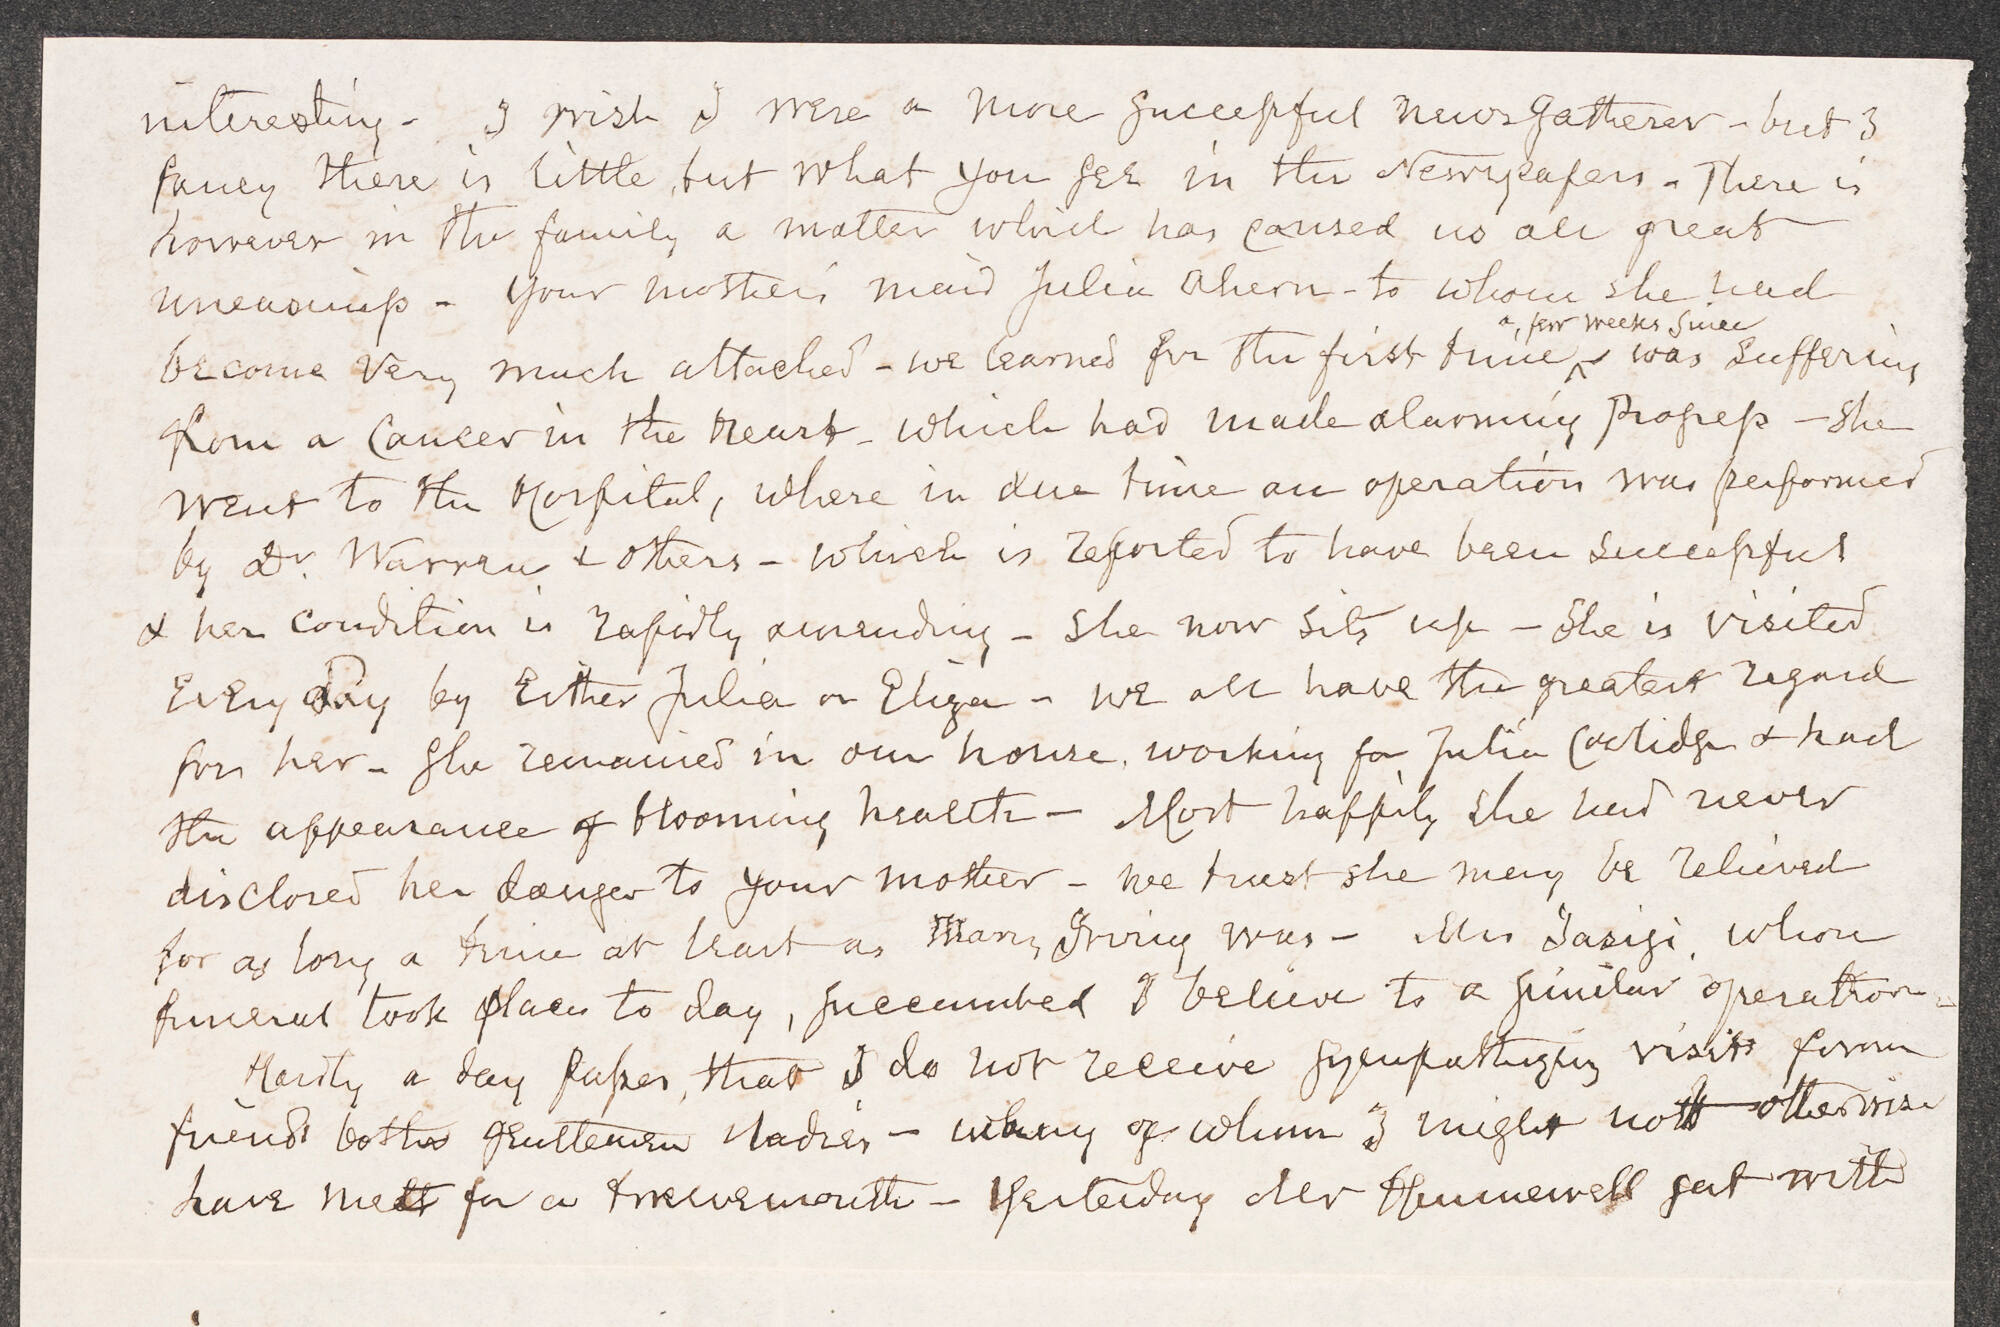 interesting - I wish I were a more successful newsgatherer - but I
fancy there is little but what you see in the Newspapers - There is
however in the family a matter which has caused us all great
uneasiness - Your mother's maid Julia Ahern - to whom she had
a few weeks since
become very much attached - we learned for the first time ^ was suffering
from a Cancer in the breast - which had made alarming progress - she
went to the Hospital, where in due time an operation was performed
by Dr. Warren & others - which is reported to have been successful
& her condition is rapidly amending - she now sits up - She is visited
Every day by Either Julia or Eliza - we all have the greatest regard
for her - She remained in our house, working for Julia Coolidge & had
the appearance of blooming health - Most happily she had never
disclosed her danger to your mother - we trust she may be relieved
for as long a time at least as Mary Irving was - Mrs Iasigi, whose
funeral took place to day, succumbed I believe to a similar operation -
Hardly a day passes, that I do not receive sympathizing visits from
friends both gentlemen & ladies - many of whom I might not otherwise
have met for a twelvemonth - Yesterday Mr Hunnewell sat with